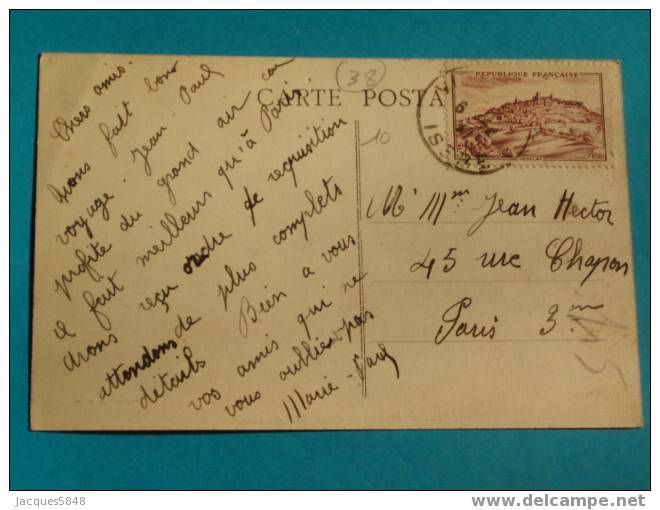 Chers amis.
Avons fait bon
voyage. Jean Paul
profite du grand air car
il fait meilleurs qu'à Paris
avons reçu ordre de requisition
attendons de plus complets
détails. Bien a vous
vos amis qui ne
vous oublies pas
Marie-Paul
(38)
CARTE POSTA
10
REPUBLIQUE FRANÇAISE
Mr Mme Jean Hector
45 rue Chapon
Paris 3.m
Jacques5848
delcampe.net